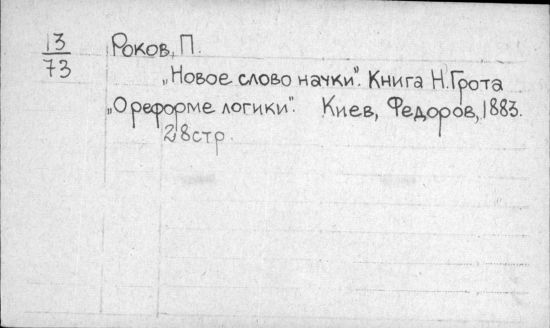 13
73
Роков, П.
„Новое слово науки". Книга Н.Грота
„О реформе логики". Киев, Федоров, 1883.
28 стр.